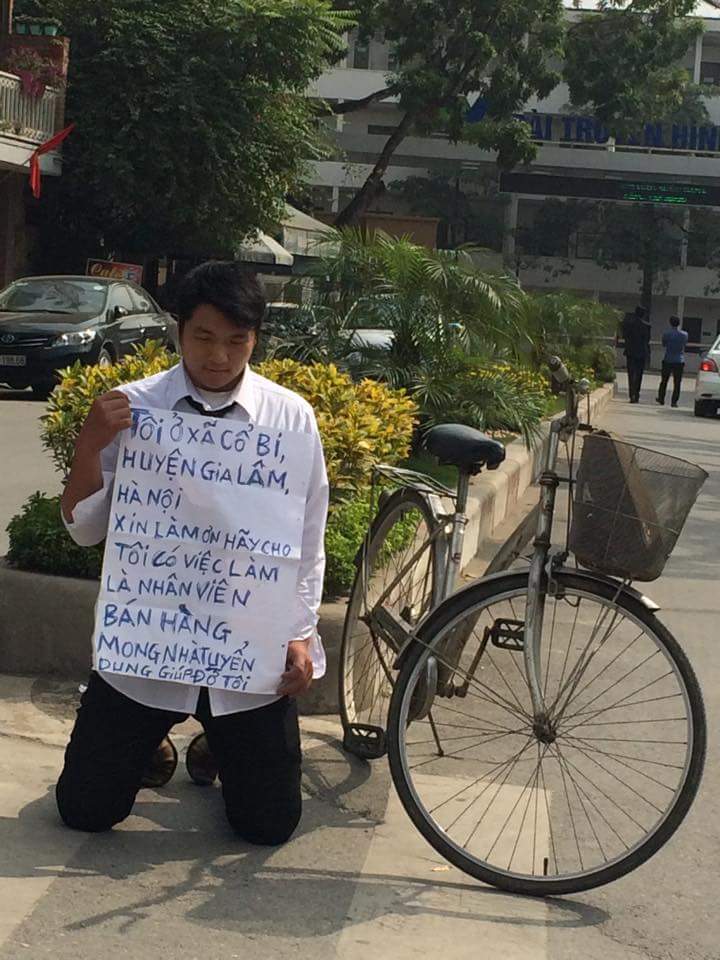 ĐÀI TRUYỀN HÌN
Cafe
TÔI Ở XÃ CỔ BI,
HUYỆN GIA LÂM,
HÀ NỘI
XIN LÀM ƠN HÃY CHO
TÔI CÓ VIỆC LÀM
LÀ NHÂN VIÊN
BÁN HÀNG
MONG NHÀ TUYỂN
DỤNG GIÚP ĐỠ TÔI